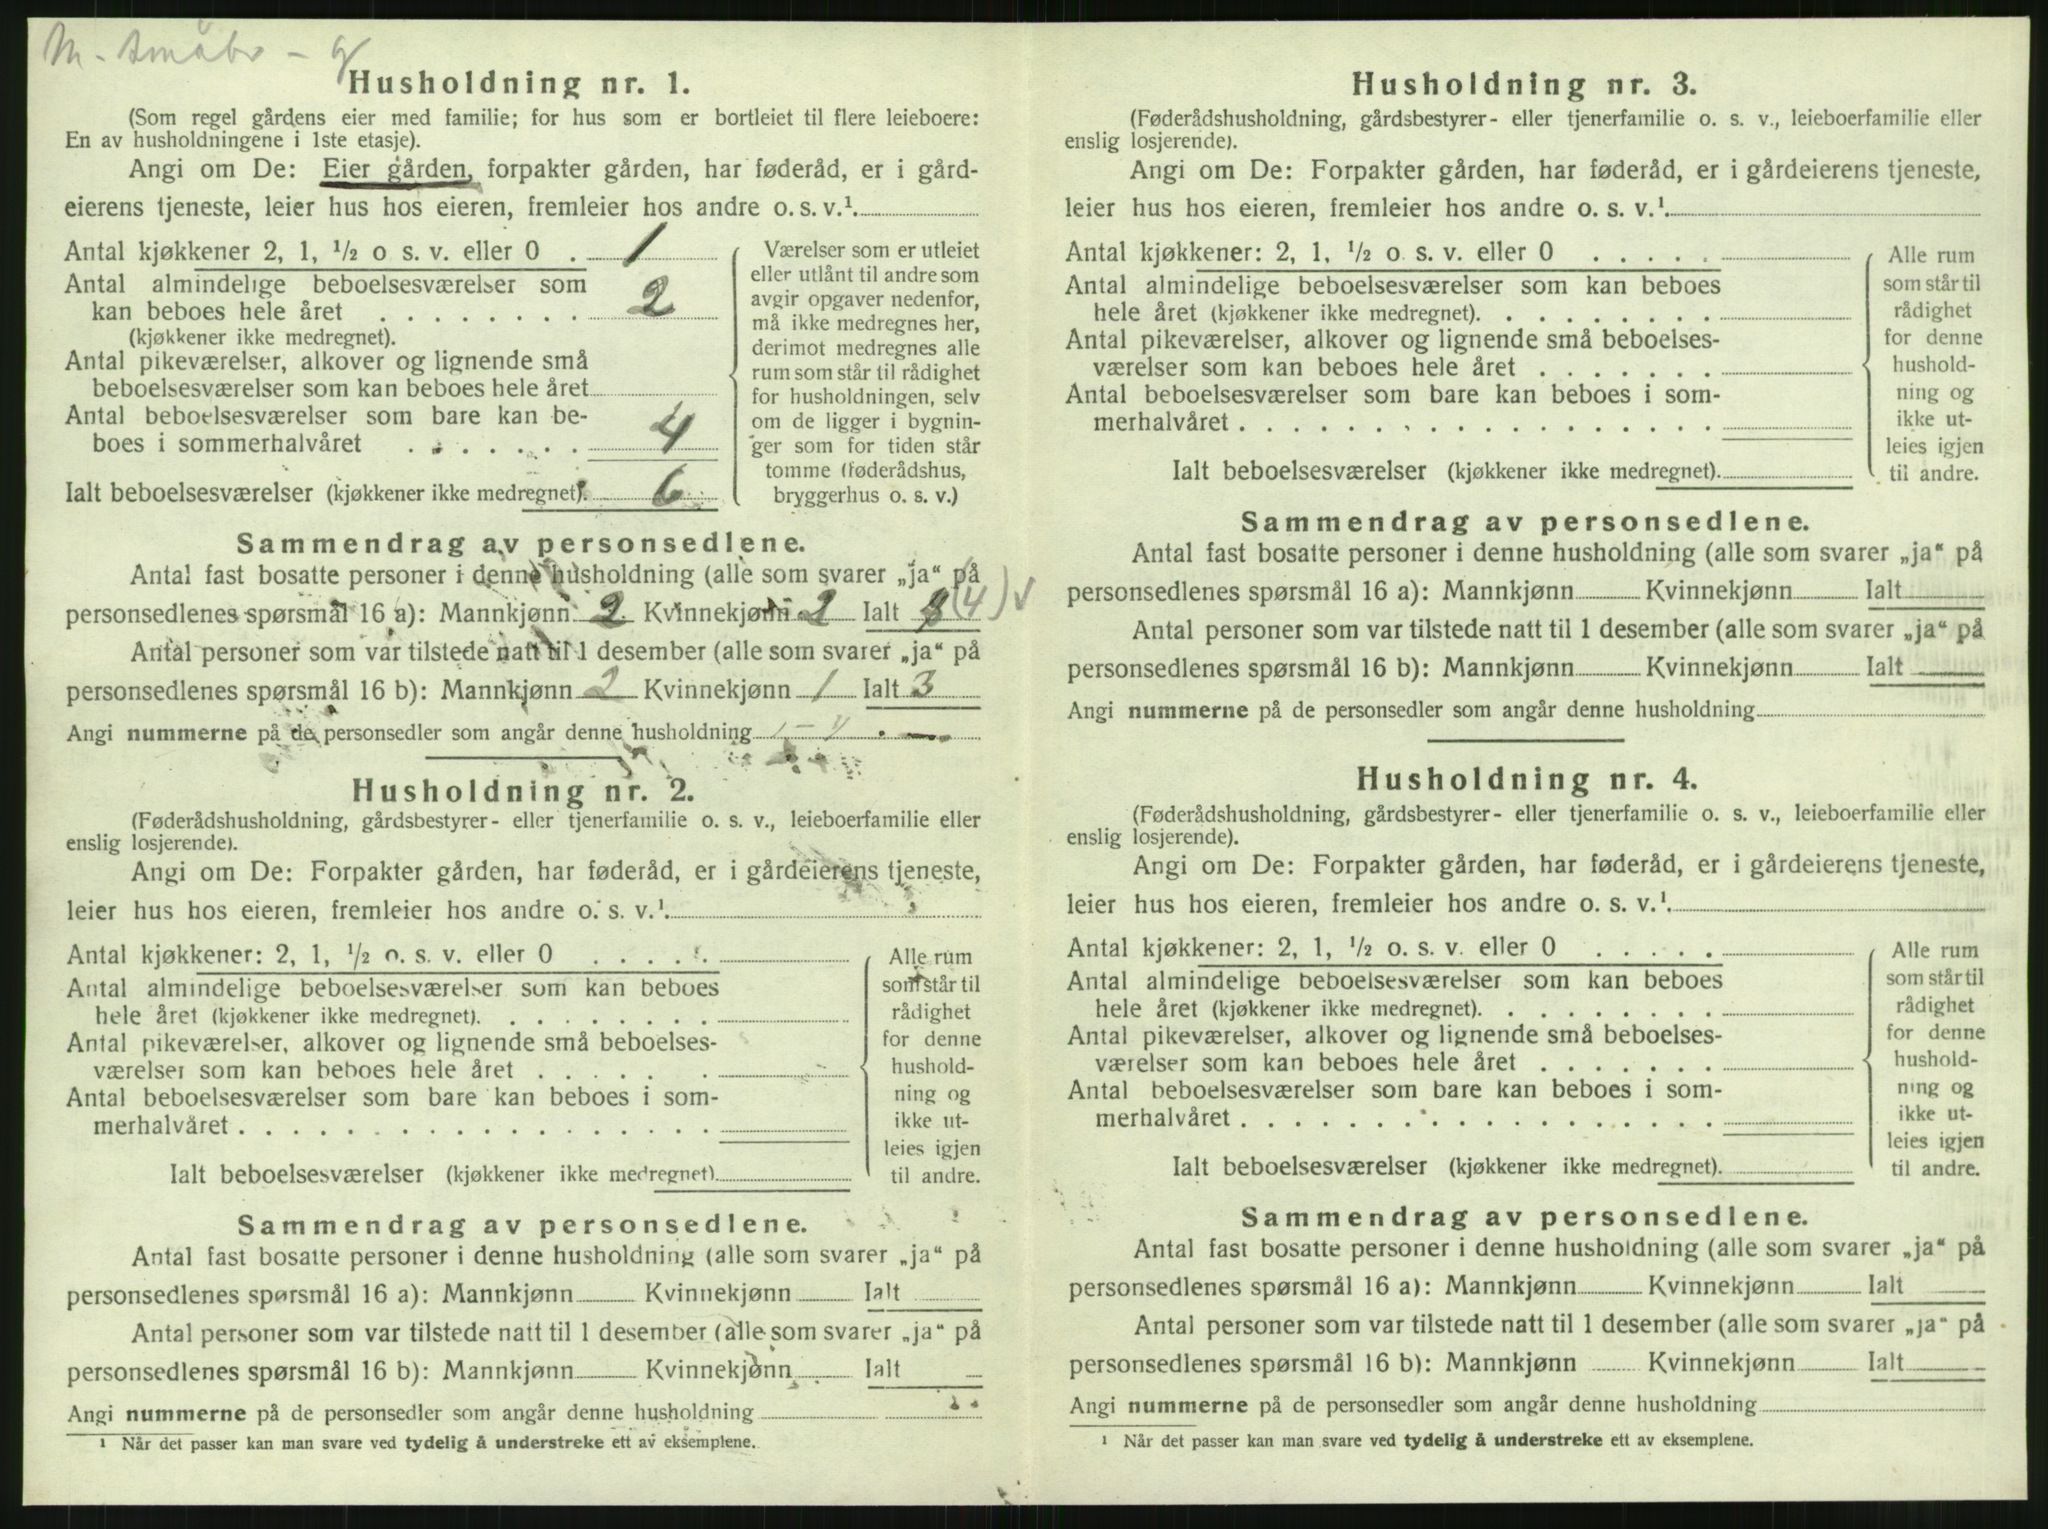 M. småbr - g
Husholdning nr. 1.
(Som regel gårdens eier med familie; for hus som er bortleiet til flere leieboere:
En av husholdningene i 1ste etasje).
Angi om De: Eier gården, forpakter gården, har føderåd, er i gård-
eierens tjeneste, leier hus hos eieren, fremleier hos andre o. s. v.¹
Antal kjøkkener 2, 1, ½ o s. v. eller 0 . 1
Antal almindelige beboelsesværelser som
kan beboes hele året . . . . . . . . 2
(kjøkkener ikke medregnet).
Antal pikeværelser, alkover og lignende små
beboelsesværelser som kan beboes hele året
Antal beboelsesværelser som bare kan be-
boes i sommerhalvåret . . . . . . . 4
Ialt beboelsesværelser (kjøkkener ikke medregnet). 6
Værelser som er utleiet
eller utlånt til andre som
avgir opgaver nedenfor,
må ikke medregnes her,
derimot medregnes alle
rum som står til rådighet
for husholdningen, selv
om de ligger i bygnin-
ger som for tiden står
tomme (føderådshus,
bryggerhus o. s. v.)
Sammendrag av personsedlene.
Antal fast bosatte personer i denne husholdning (alle som svarer „ja“ på
personsedlenes spørsmål 16 a): Mannkjønn 2 Kvinnekjønn 2 Ialt (4) √
Antal personer som var tilstede natt til 1 desember (alle som svarer „ja“ på
personsedlenes spørsmål 16 b): Mannkjønn 2 Kvinnekjønn 1 Ialt 3
Angi nummerne på de personsedler som angår denne husholdning 1-4
Husholdning nr. 2.
(Føderådshusholdning, gårdsbestyrer- eller tjenerfamilie o. s. v., leieboerfamilie eller
enslig losjerende).
Angi om De: Forpakter gården, har føderåd, er i gårdeierens tjeneste,
leier hus hos eieren, fremleier hos andre o. s. v.¹
Antal kjøkkener: 2, 1, ½ o. s. v. eller 0 . . . . .
Antal almindelige beboelsesværelser som kan beboes
hele året (kjøkkener ikke medregnet). . . . . . . . .
Antal pikeværelser, alkover og lignende små beboelses-
værelser som kan beboes hele året . . . . . . .
Antal beboelsesværelser som bare kan beboes i som-
merhalvåret . . . . . . . . . . . . . . . . . .
Ialt beboelsesværelser (kjøkkener ikke medregnet)
Alle rum
som står til
rådighet
for denne
hushold-
ning og
ikke ut-
leies igjen
til andre.
Sammendrag av personsedlene.
Antal fast bosatte personer i denne husholdning (alle som svarer „ja“ på
personsedlenes spørsmål 16 a): Mannkjønn Kvinnekjønn Ialt
Antal personer som var tilstede natt til 1 desember (alle som svarer „ja“ på
personsedlenes spørsmål 16 b): Mannkjønn Kvinnekjønn Ialt
Angi nummerne på de personsedler som angår denne husholdning
¹ Når det passer kan man svare ved tydelig å understreke ett av eksemplene.
Husholdning nr. 3.
(Føderådshusholdning, gårdsbestyrer- eller tjenerfamilie o. s. v., leieboerfamilie eller
enslig losjerende).
Angi om De: Forpakter gården, har føderåd, er i gårdeierens tjeneste,
leier hus hos eieren, fremleier hos andre o. s. v.¹
Antal kjøkkener: 2, 1, ½ o. s. v. eller 0 . . . . .
Antal almindelige beboelsesværelser som kan beboes
hele året (kjøkkener ikke medregnet). . . . . . . . .
Antal pikeværelser, alkover og lignende små beboelses-
værelser som kan beboes hele året . . . . . . .
Antal beboelsesværelser som bare kan beboes i som-
merhalvåret . . . . . . . . . . . . . . . . . .
Ialt beboelsesværelser (kjøkkener ikke medregnet).
Alle rum
som står til
rådighet
for denne
hushold-
ning og
ikke ut-
leies igjen
til andre.
Sammendrag av personsedlene.
Antal fast bosatte personer i denne husholdning (alle som svarer „ja“ på
personsedlenes spørsmål 16 a): Mannkjønn Kvinnekjønn Ialt
Antal personer som var tilstede natt til 1 desember (alle som svarer „ja“ på
personsedlenes spørsmål 16 b): Mannkjønn Kvinnekjønn Ialt
Angi nummerne på de personsedler som angår denne husholdning
Husholdning nr. 4.
(Føderådshusholdning, gårdsbestyrer- eller tjenerfamilie o. s. v., leieboerfamilie eller
enslig losjerende).
Angi om De: Forpakter gården, har føderåd, er i gårdeierens tjeneste,
leier hus hos eieren, fremleier hos andre o. s. v.¹
Antal kjøkkener: 2, 1, ½ o. s. v. eller 0 . . . . .
Antal almindelige beboelsesværelser som kan beboes
hele året (kjøkkener ikke medregnet). . . . . . . . .
Antal pikeværelser, alkover og lignende små beboelses-
værelser som kan beboes hele året . . . . . . .
Antal beboelsesværelser som bare kan beboes i som-
merhalvåret . . . . . . . . . . . . . . . . . .
Ialt beboelsesværelser (kjøkkener ikke medregnet).
Alle rum
som står til
rådighet
for denne
hushold-
ning og
ikke ut-
leies igjen
til andre.
Sammendrag av personsedlene.
Antal fast bosatte personer i denne husholdning (alle som svarer „ja“ på
personsedlenes spørsmål 16 a): Mannkjønn Kvinnekjønn Ialt
Antal personer som var tilstede natt til 1 desember (alle som svarer „ja“ på
personsedlenes spørsmål 16 b): Mannkjønn Kvinnekjønn Ialt
Angi nummerne på de personsedler som angår denne husholdning
¹ Når det passer kan man svare ved tydelig å understreke ett av eksemplene.